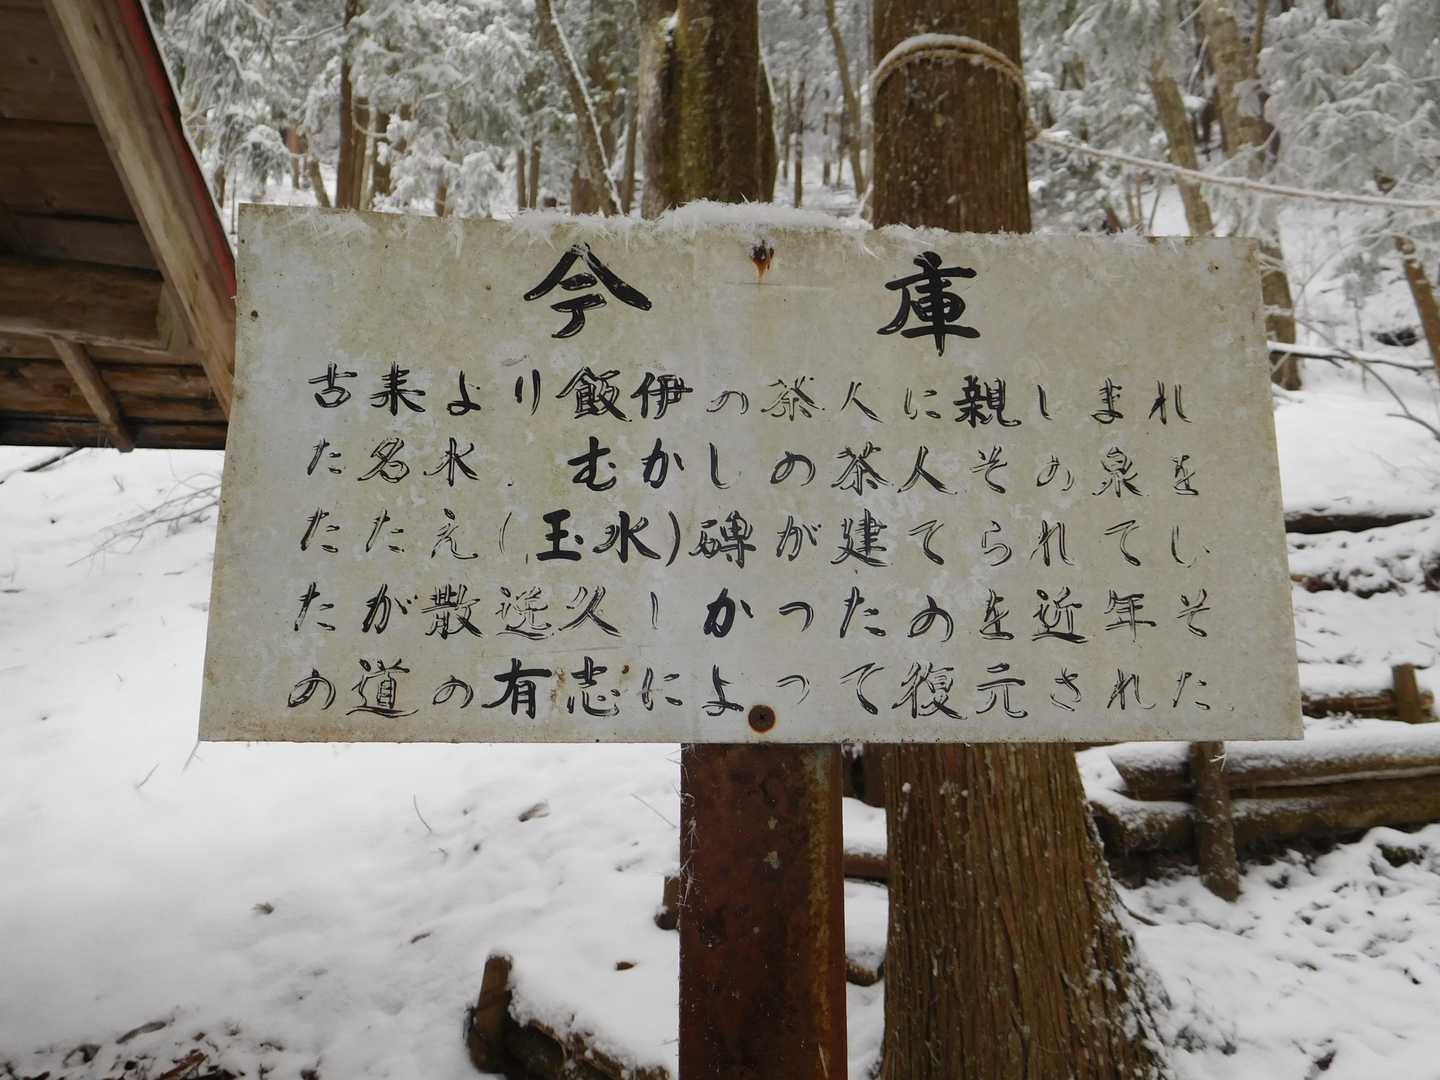 今庫
古来より飯伊の茶人に親しまれ
た名水.むかしの茶人その泉を
たたえ(玉水)磚が建てられてい
たが散逸久しかったのを近年そ
の道の有志によって復元された.